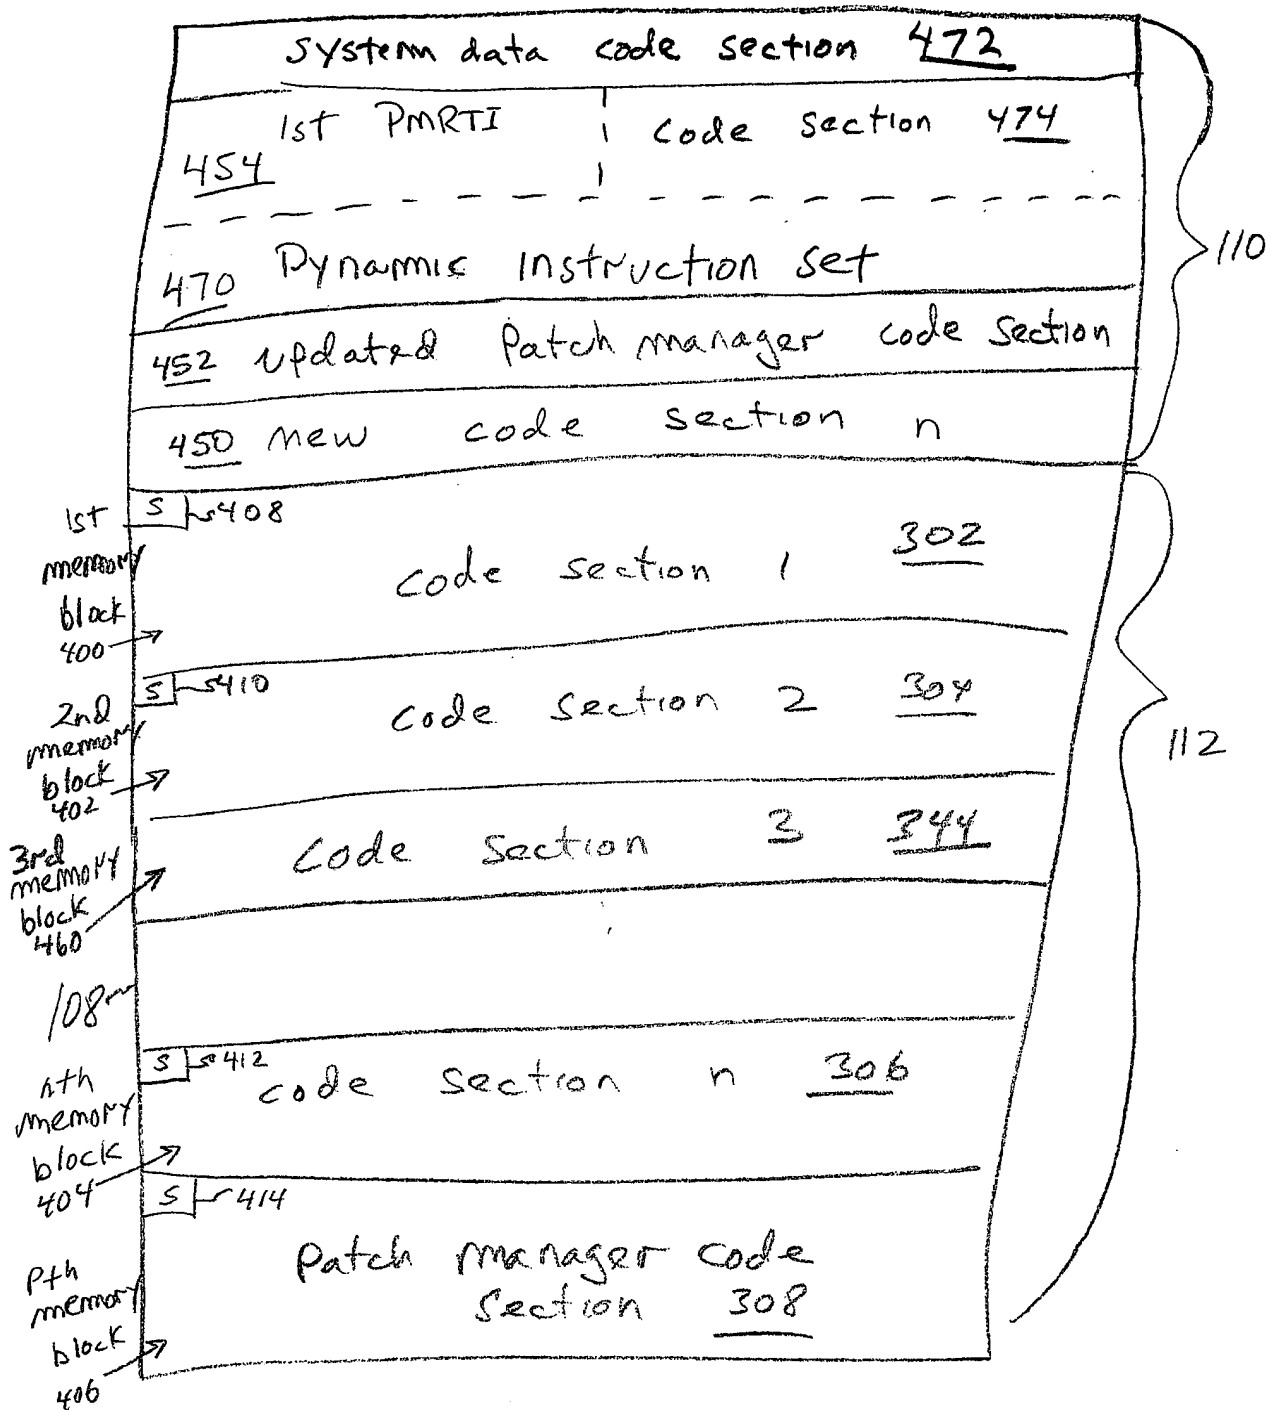 system data code section 472
1st PMRTI code section 474
454
470 Dynamic instruction set
110
452 updated patch manager code section
450 new code section n
S 408
1st
memory
block
400
code section 1 302
S 410
2nd
memory
block
402
code section 2 304
112
3rd
memory
block
460
code section 3 344
108
S 412
nth
memory
block
404
code section n 306
S 414
Pth
memory
block
406
Patch manager code
section 308